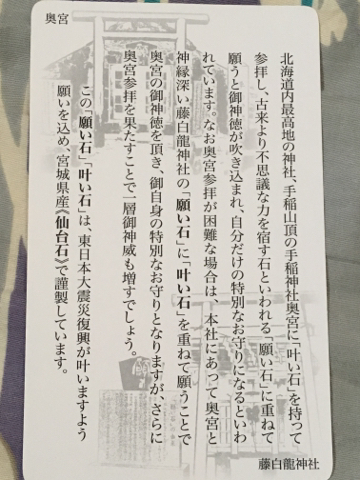 奥宮
北海道内最高地の神社、手稲山頂の手稲神社奥宮に「叶い石」を持って
参拝し、古来より不思議な力を宿す石といわれる「願い石」に重ねて
願うと御神徳が吹き込まれ、自分だけの特別なお守りになるといわ
れています。なお奥宮参拝が困難な場合は、本社にあって奥宮と
神縁深い藤白龍神社の「願い石」に「叶い石」を重ねて願うことで
奥宮の御神徳を頂き、御自身の特別なお守りとなりますが、さらに
奥宮参拝を果たすことで一層御神威も増すでしょう。
この「願い石」「叶い石」は、東日本大震災復興が叶いますよう
願いを込め、宮城県産《仙台石》で謹製しています。
藤白龍神社